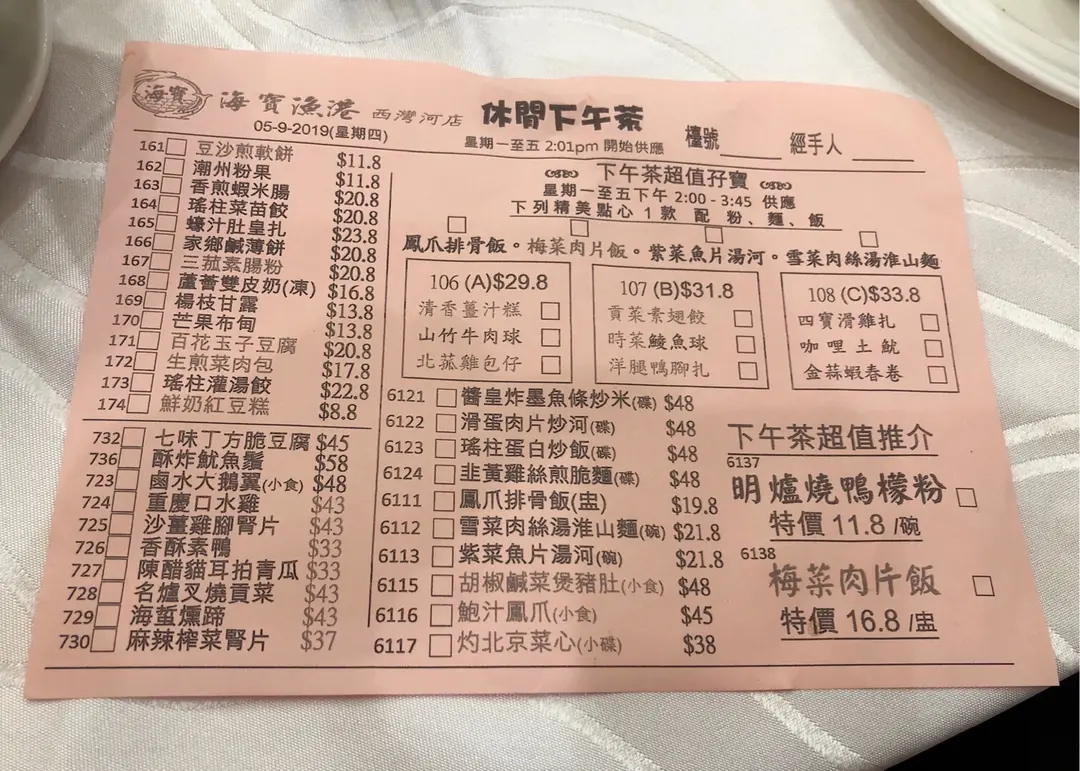 海寶 海寶漁港 西灣河店 休閒下午茶 檯號 經手人
05-9-2019(星期四) 星期一至五 2:01pm 開始供應
161 豆沙煎軟餅 $11.8
162 潮州粉果 $11.8
163 香煎蝦米腸 $20.8
164 瑤柱菜苗餃 $20.8
165 蠔汁肚皇扎 $23.8
166 家鄉鹹薄餅 $20.8
167 三菰素腸粉 $20.8
168 蘆薈雙皮奶(凍) $16.8
169 楊枝甘露 $13.8
170 芒果布甸 $13.8
171 百花玉子豆腐 $20.8
172 生煎菜肉包 $17.8
173 瑤柱灌湯餃 $22.8
174 鮮奶紅豆糕 $8.8
732 七味丁方脆豆腐 $45
736 酥炸魷魚鬚 $58
723 鹵水大鵝翼(小食) $48
724 重慶口水雞 $43
725 沙薑雞腳腎片 $43
726 香酥素鴨 $33
727 陳醋貓耳拍青瓜 $33
728 名爐叉燒貢菜 $43
729 海蜇燻蹄 $43
730 麻辣榨菜腎片 $37
下午茶超值孖寶
星期一至五下午 2:00 - 3:45 供應
下列精美點心 1 款 配 粉、麵、飯
鳳爪排骨飯。梅菜肉片飯。紫菜魚片湯河。雪菜肉絲湯淮山麵
106 (A)$29.8
清香薑汁糕
山竹牛肉球
北菰雞包仔
107 (B)$31.8
貢菜素翅餃
時菜鯪魚球
洋腿鴨腳扎
108 (C)$33.8
四寶滑雞扎
咖哩土魷
金蒜蝦春卷
6121 醬皇炸墨魚條炒米(碟) $48
6122 滑蛋肉片炒河(碟) $48
6123 瑤柱蛋白炒飯(碟) $48
6124 韭黃雞絲煎脆麵(碟) $48
6111 鳳爪排骨飯(盅) $19.8
6112 雪菜肉絲湯淮山麵(碗) $21.8
6113 紫菜魚片湯河(碗) $21.8
6115 胡椒鹹菜煲豬肚(小食) $48
6116 鮑汁鳳爪(小食) $45
6117 灼北京菜心(小碟) $38
下午茶超值推介
6137
明爐燒鴨檬粉
特價 11.8 /碗
6138
梅菜肉片飯
特價 16.8 /盅